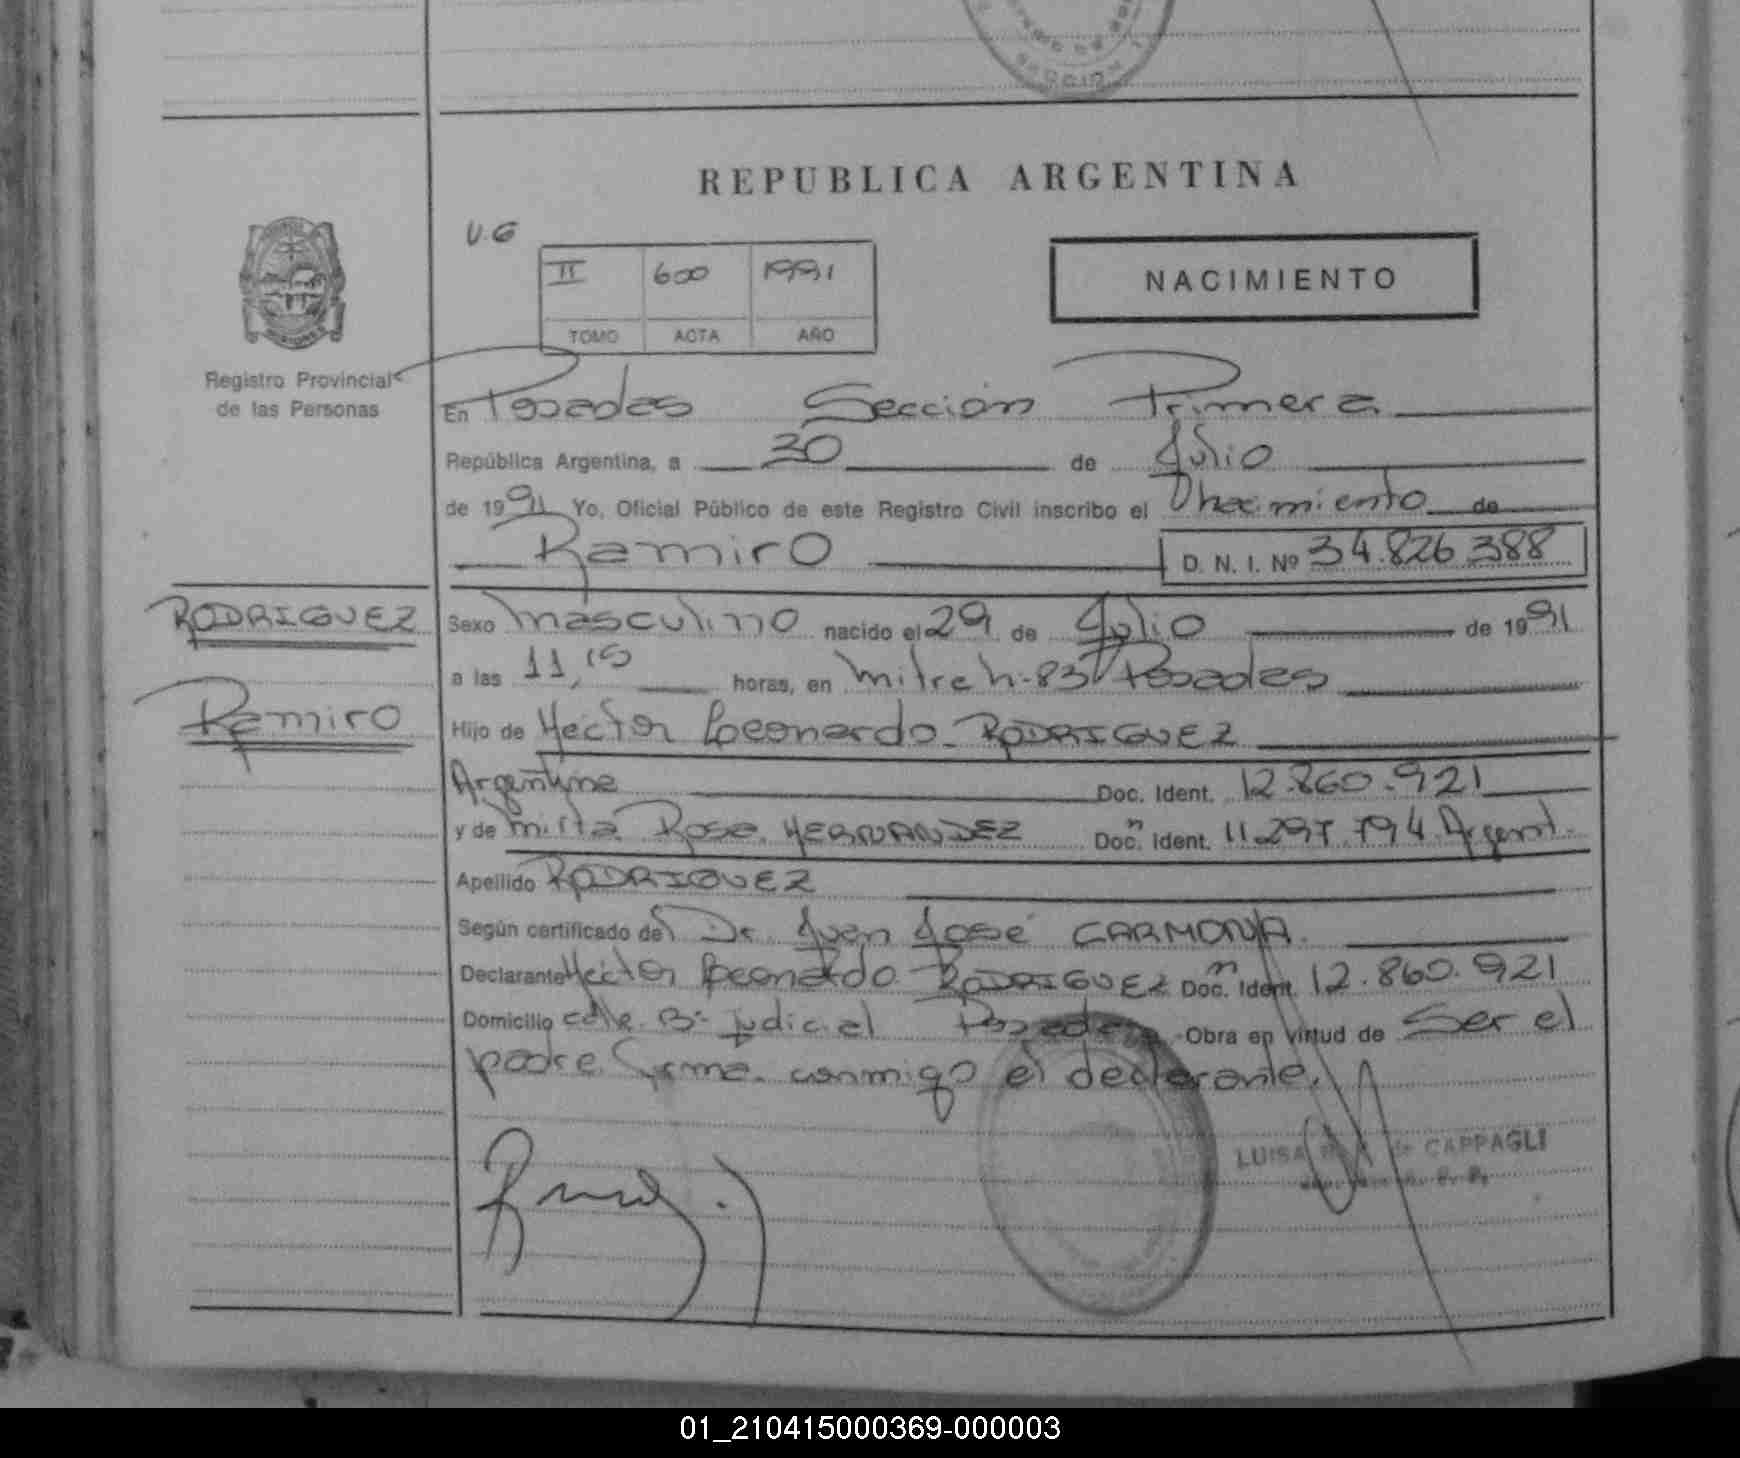 REPUBLICA ARGENTINA
U.G
II 600 1991
TOMO ACTA AÑO
NACIMIENTO
Registro Provincial
de las Personas
En Posadas Sección Primera
República Argentina, a 30 de Julio
de 1991 Yo, Oficial Público de este Registro Civil inscribo el Nacimiento de
Ramiro D. N. I. Nº 34.826.388
RODRIGUEZ
Ramiro
Sexo masculino nacido el 29 de Julio de 1991
a las 11,15 horas, en Mitre Posadas
Hijo de Hector Leonardo RODRIGUEZ
Argentina Doc. Ident. 12.860.921
y de Mirta Rosa HERNANDEZ Doc. Ident. 11.297.794 Argent.
Apellido RODRIGUEZ
Según certificado del Dr. Juan José CARMONA
Declarante Hector Leonardo RODRIGUEZ Doc. Ident. 12.860.921
Domicilio calle Bº Judicial Posadas Obra en virtud de Ser el
padre. Firma conmigo el declarante.
LUISA CAPPAGLI
01_210415000369-000003